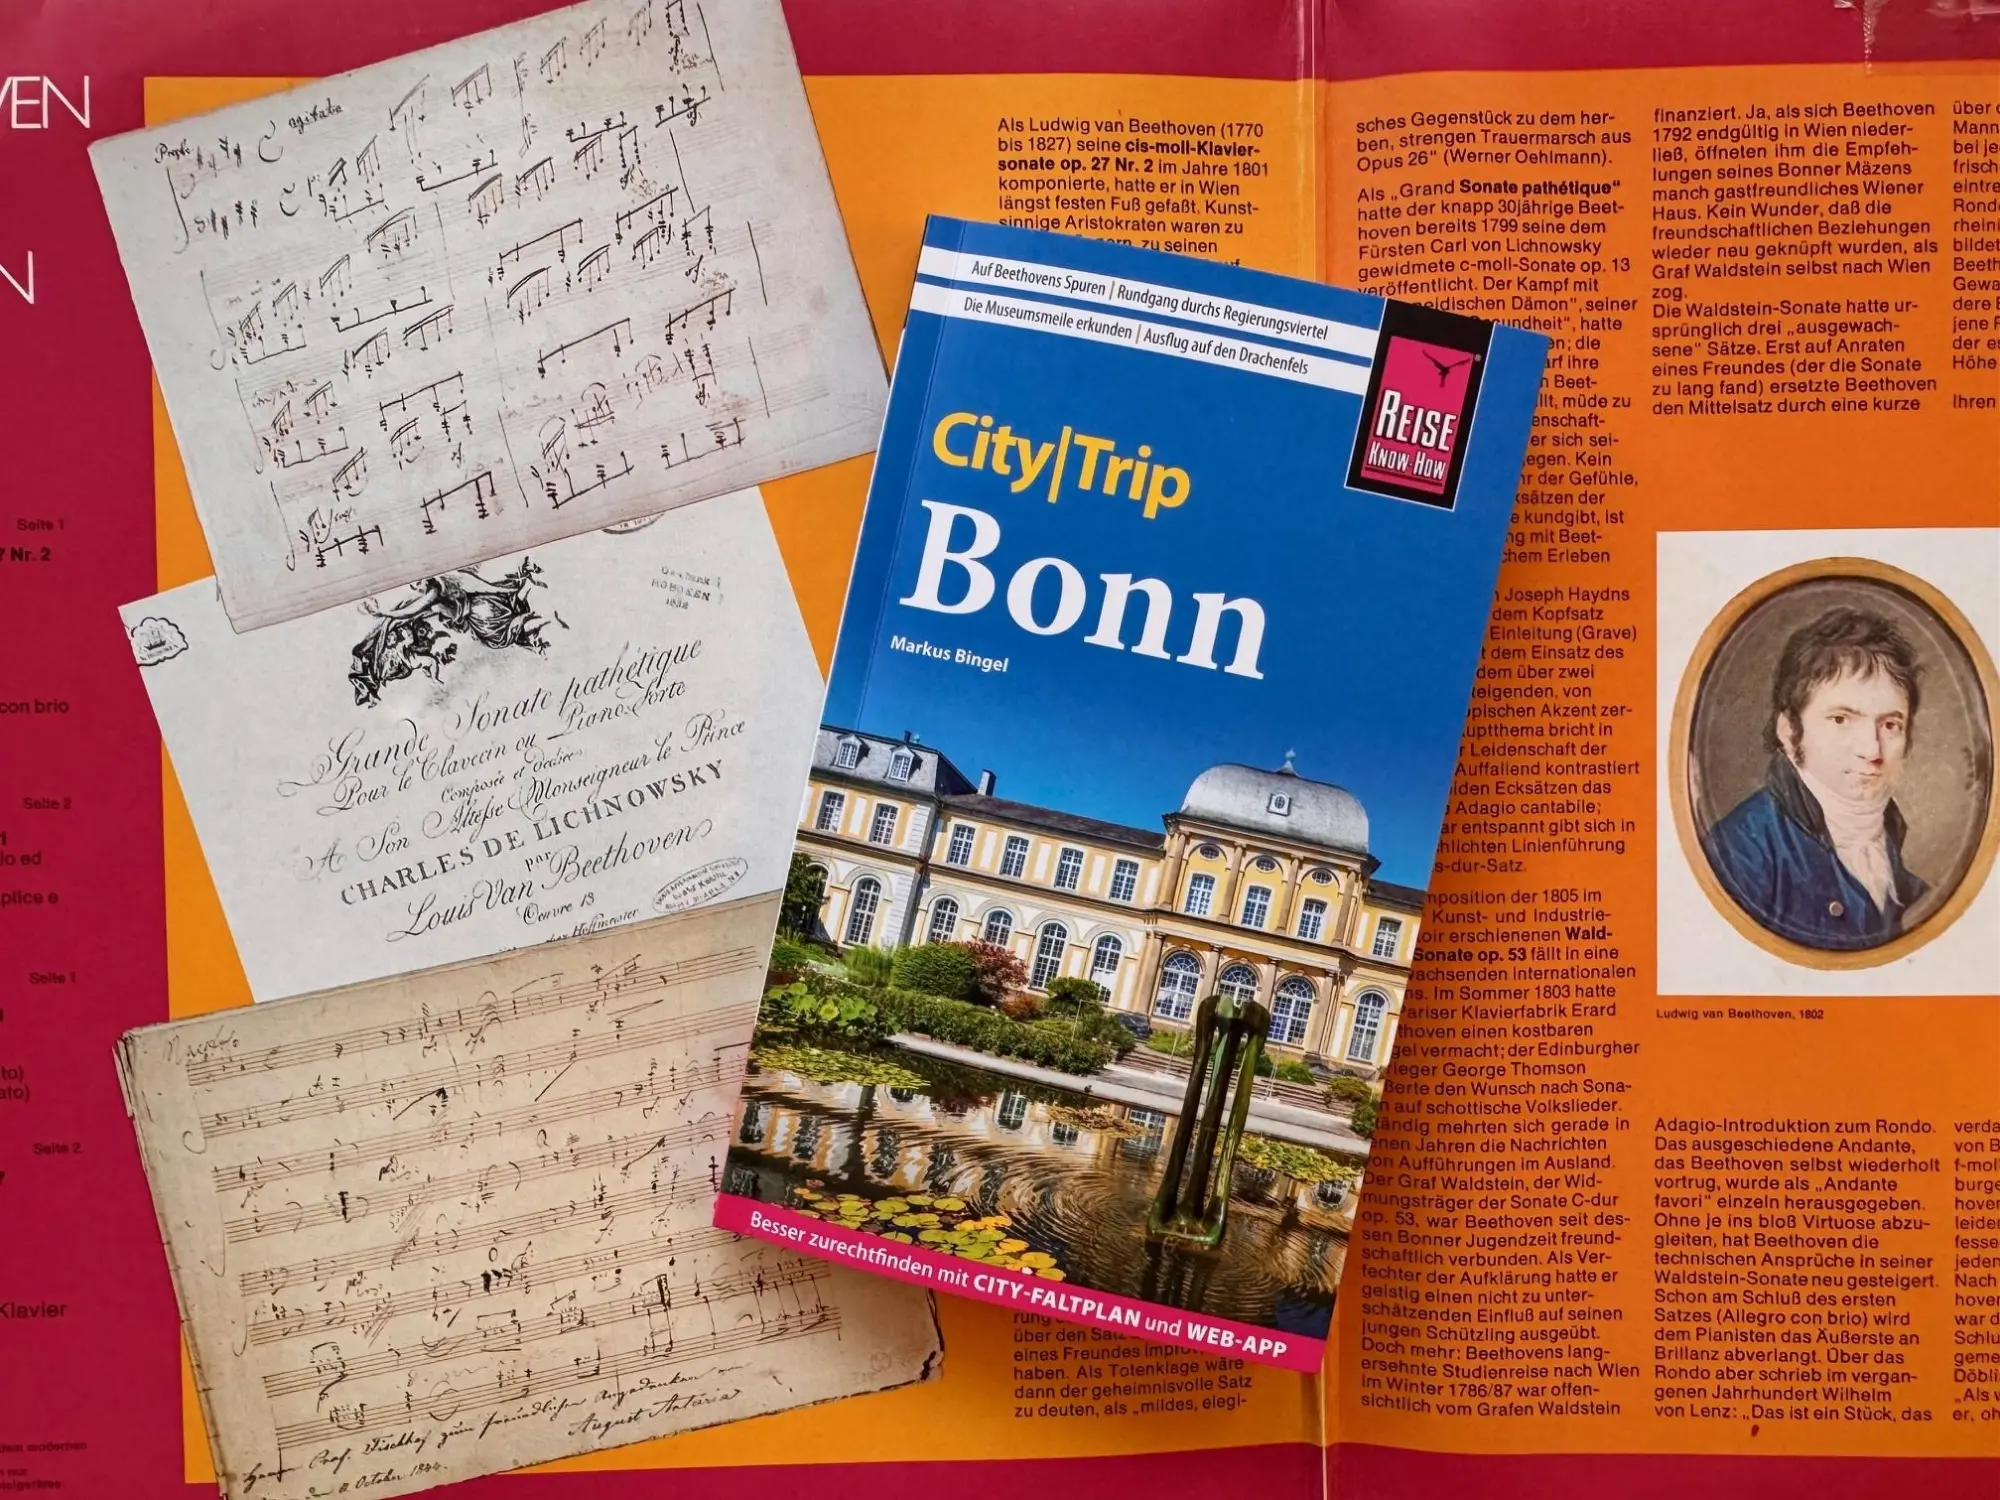 VEN
N
Seite 1
7 Nr. 2
con brio
Seite 2
1
lo ed
plice e
Seite 1
to)
ato)
Seite 2
7
Klavier
dem modernen
agitato
Grande Sonate pathétique
Pour le Clavecin ou Piano-Forte
Composée et dediée
A Son Altesse Monseigneur le Prince
CHARLES DE LICHNOWSKY
par
Louis Van Beethoven
Oeuvre 13
chez Hoffmeister
HOBOKEN
Herrn Prof. Fischhof zum freundlichen Angedenken von
August Artaria
8 October 1844.
Als Ludwig van Beethoven (1770
bis 1827) seine cis-moll-Klavier-
sonate op. 27 Nr. 2 im Jahre 1801
komponierte, hatte er in Wien
längst festen Fuß gefaßt. Kunst-
sinnige Aristokraten waren zu
zu seinen
Auf Beethovens Spuren | Rundgang durchs Regierungsviertel
Die Museumsmeile erkunden | Ausflug auf den Drachenfels
REISE
KNOW-HOW
City|Trip
Bonn
Markus Bingel
Besser zurechtfinden mit CITY-FALTPLAN und WEB-APP
über den Satz
eines Freundes
haben. Als Totenklage wäre
dann der geheimnisvolle Satz
zu deuten, als „mildes, elegi-
sches Gegenstück zu dem her-
ben, strengen Trauermarsch aus
Opus 26“ (Werner Oehlmann).
Als „Grand Sonate pathétique“
hatte der knapp 30jährige Beet-
hoven bereits 1799 seine dem
Fürsten Carl von Lichnowsky
gewidmete c-moll-Sonate op. 13
veröffentlicht. Der Kampf mit
eidischen Dämon“, seiner
sundheit“, hatte
en; die
arf ihre
n Beet-
llt, müde zu
enschaft-
er sich sei-
egen. Kein
hr der Gefühle,
ksätzen der
e kundgibt, ist
ng mit Beet-
chem Erleben
n Joseph Haydns
dem Kopfsatz
Einleitung (Grave)
t dem Einsatz des
dem über zwei
teigenden, von
opischen Akzent zer-
uptthema bricht in
r Leidenschaft der
Auffallend kontrastiert
iden Ecksätzen das
e Adagio cantabile;
ar entspannt gibt sich in
chlichten Linienführung
s-dur-Satz.
mposition der 1805 im
Kunst- und Industrie-
oir erschienenen Wald-
Sonate op. 53 fällt in eine
wachsenden internationalen
ns. Im Sommer 1803 hatte
Pariser Klavierfabrik Erard
thoven einen kostbaren
gel vermacht; der Edinburgher
rleger George Thomson
ßerte den Wunsch nach Sona-
n auf schottische Volkslieder.
tändig mehrten sich gerade in
enen Jahren die Nachrichten
von Aufführungen im Ausland.
Der Graf Waldstein, der Wid-
mungsträger der Sonate C-dur
op. 53, war Beethoven seit des-
sen Bonner Jugendzeit freund-
schaftlich verbunden. Als Ver-
fechter der Aufklärung hatte er
geistig einen nicht zu unter-
schätzenden Einfluß auf seinen
jungen Schützling ausgeübt.
Doch mehr: Beethovens lang-
ersehnte Studienreise nach Wien
im Winter 1786/87 war offen-
sichtlich vom Grafen Waldstein
finanziert. Ja, als sich Beethoven
1792 endgültig in Wien nieder-
ließ, öffneten ihm die Empfeh-
lungen seines Bonner Mäzens
manch gastfreundliches Wiener
Haus. Kein Wunder, daß die
freundschaftlichen Beziehungen
wieder neu geknüpft wurden, als
Graf Waldstein selbst nach Wien
zog.
Die Waldstein-Sonate hatte ur-
sprünglich drei „ausgewach-
sene“ Sätze. Erst auf Anraten
eines Freundes (der die Sonate
zu lang fand) ersetzte Beethoven
den Mittelsatz durch eine kurze
Ludwig van Beethoven, 1802
Adagio-Introduktion zum Rondo.
Das ausgeschiedene Andante,
das Beethoven selbst wiederholt
vortrug, wurde als „Andante
favori“ einzeln herausgegeben.
Ohne je ins bloß Virtuose abzu-
gleiten, hat Beethoven die
technischen Ansprüche in seiner
Waldstein-Sonate neu gesteigert.
Schon am Schluß des ersten
Satzes (Allegro con brio) wird
dem Pianisten das Äußerste an
Brillanz abverlangt. Über das
Rondo aber schrieb im vergan-
genen Jahrhundert Wilhelm
von Lenz: „Das ist ein Stück, das
über
Mann
bei je
frisch
eintre
Rond
rheini
bildet
Beeth
Gewa
dere
jene F
der es
Höhe
Ihren
verda
von B
f-moll
burge
hoven
leiden
fesse
jeden
Nach
hoven
war d
Schlu
geme
Döbli
„Als w
er, oh